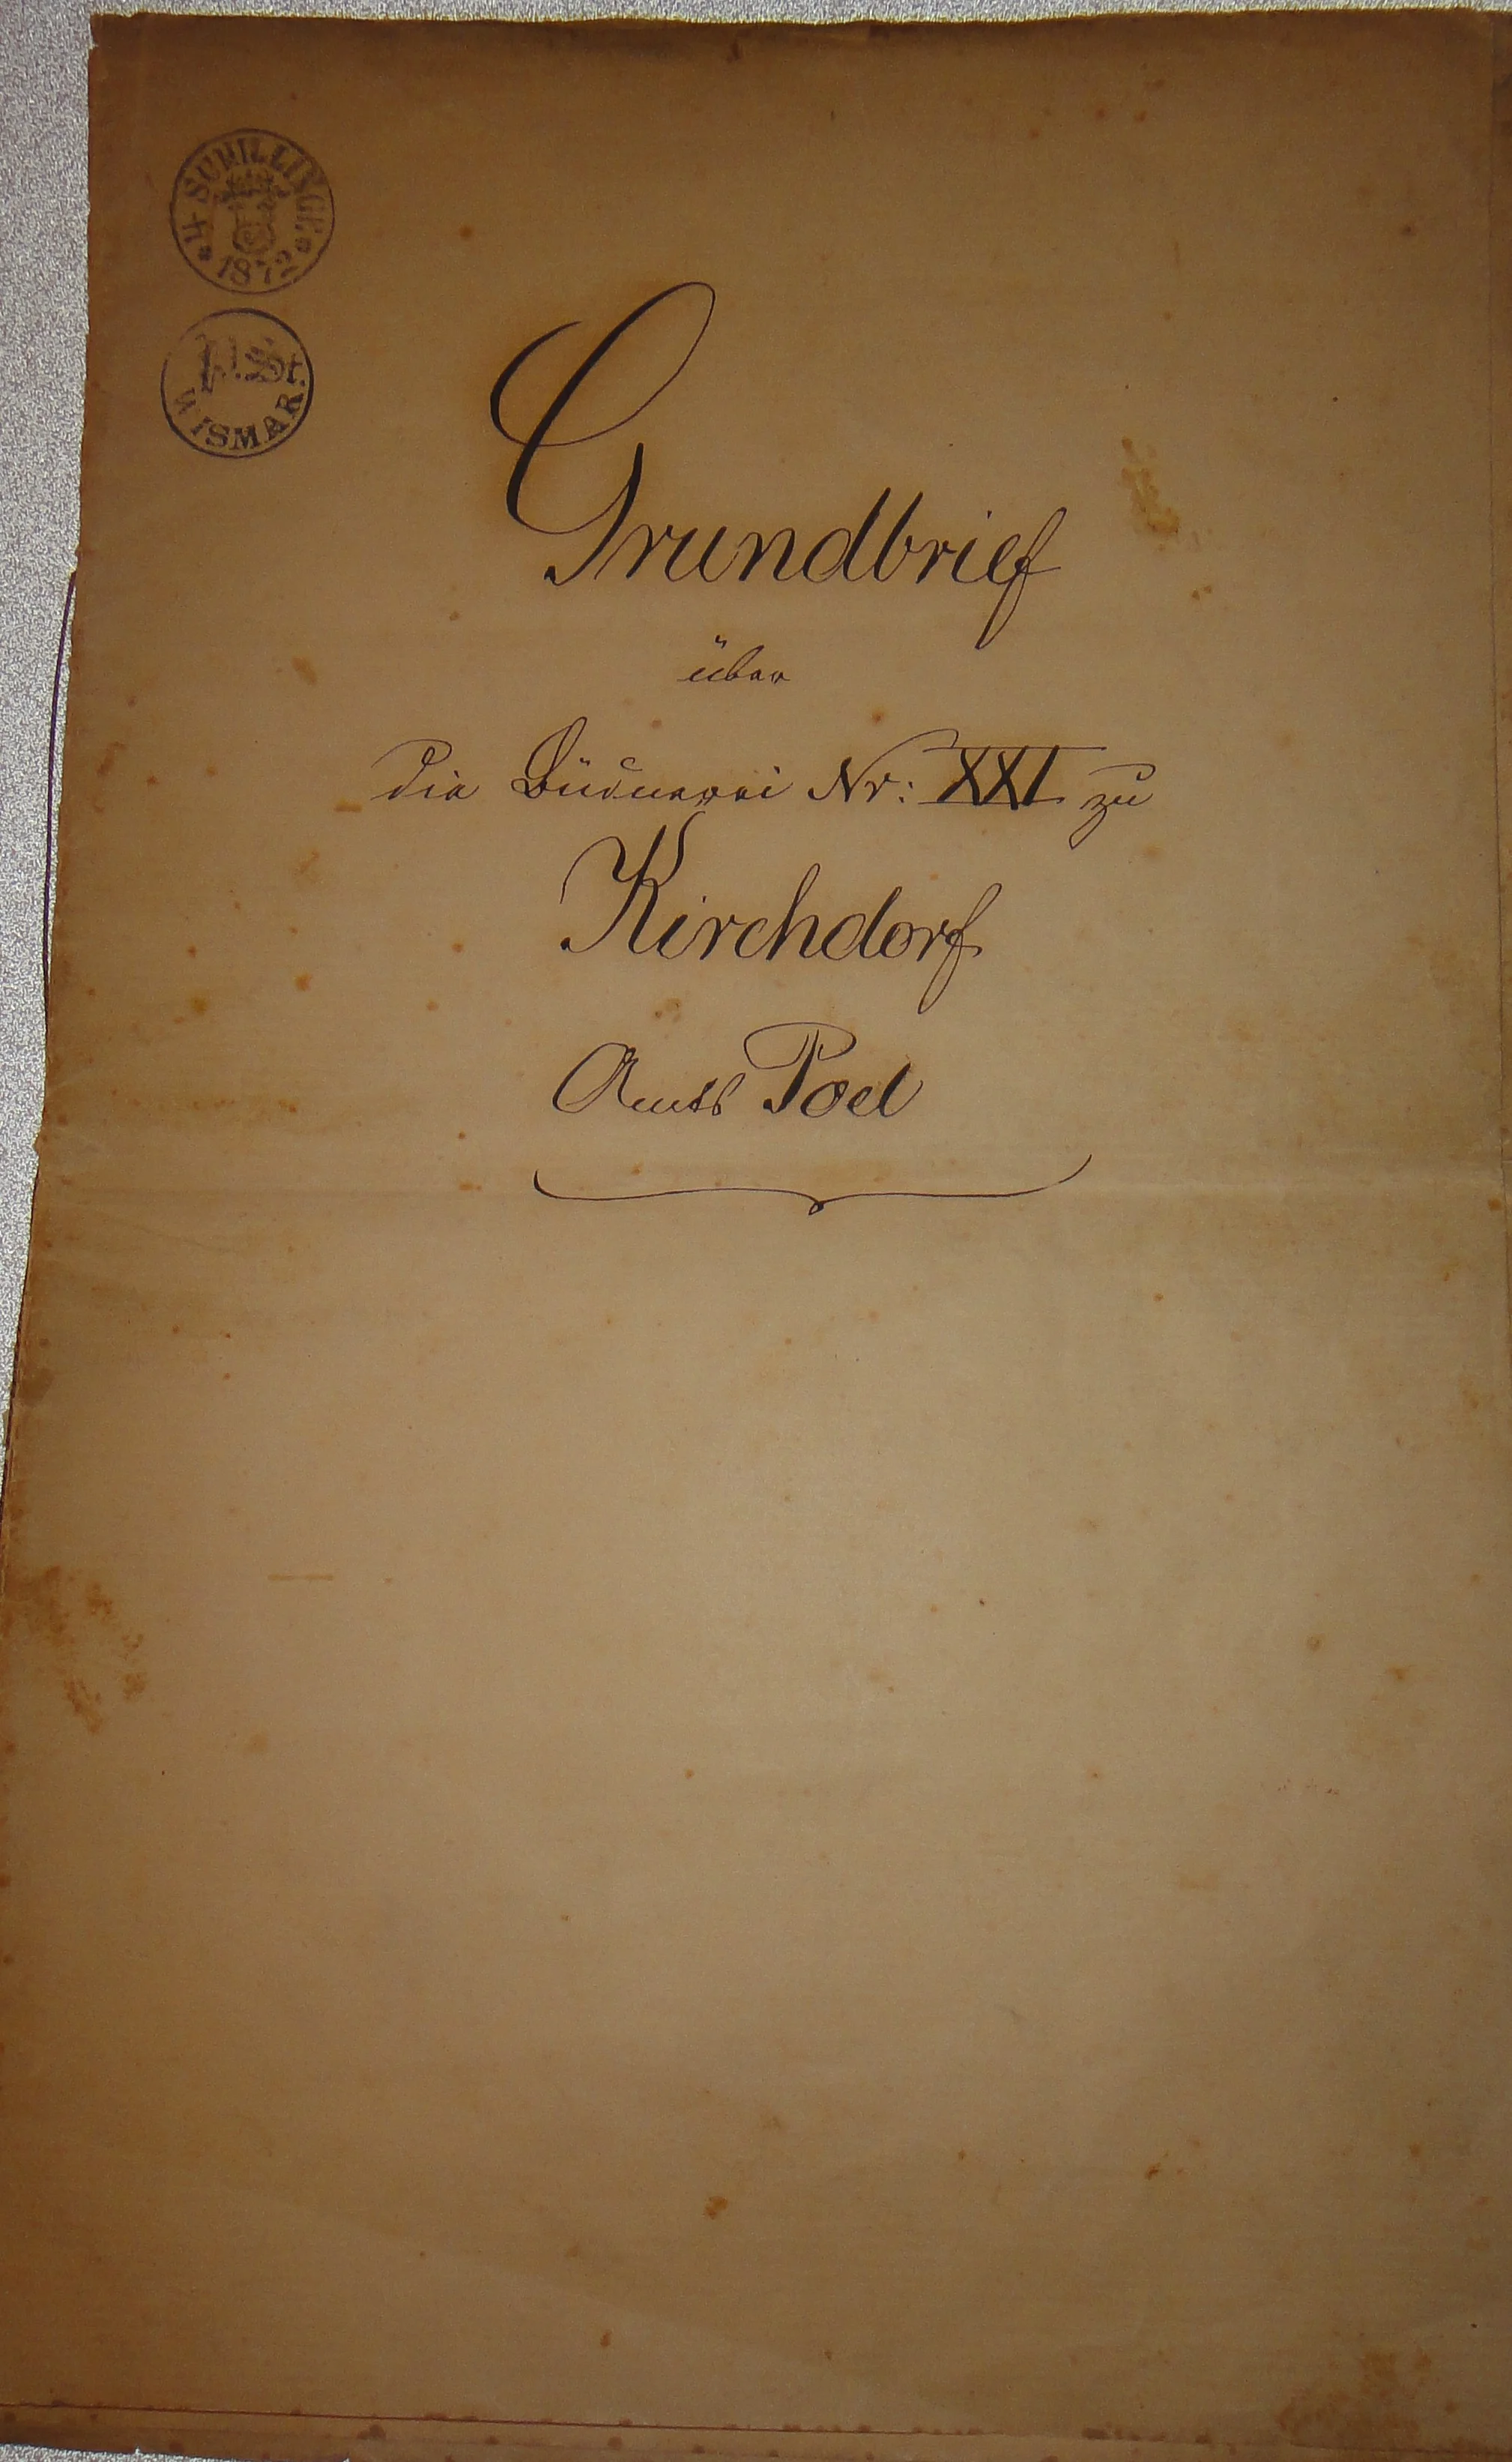 * 4 SCHILLINGE *
1872
H.St.
WISMAR.
Grundbrief
über
die Büdnerei Nr: XXI zu
Kirchdorf
Amts Poel